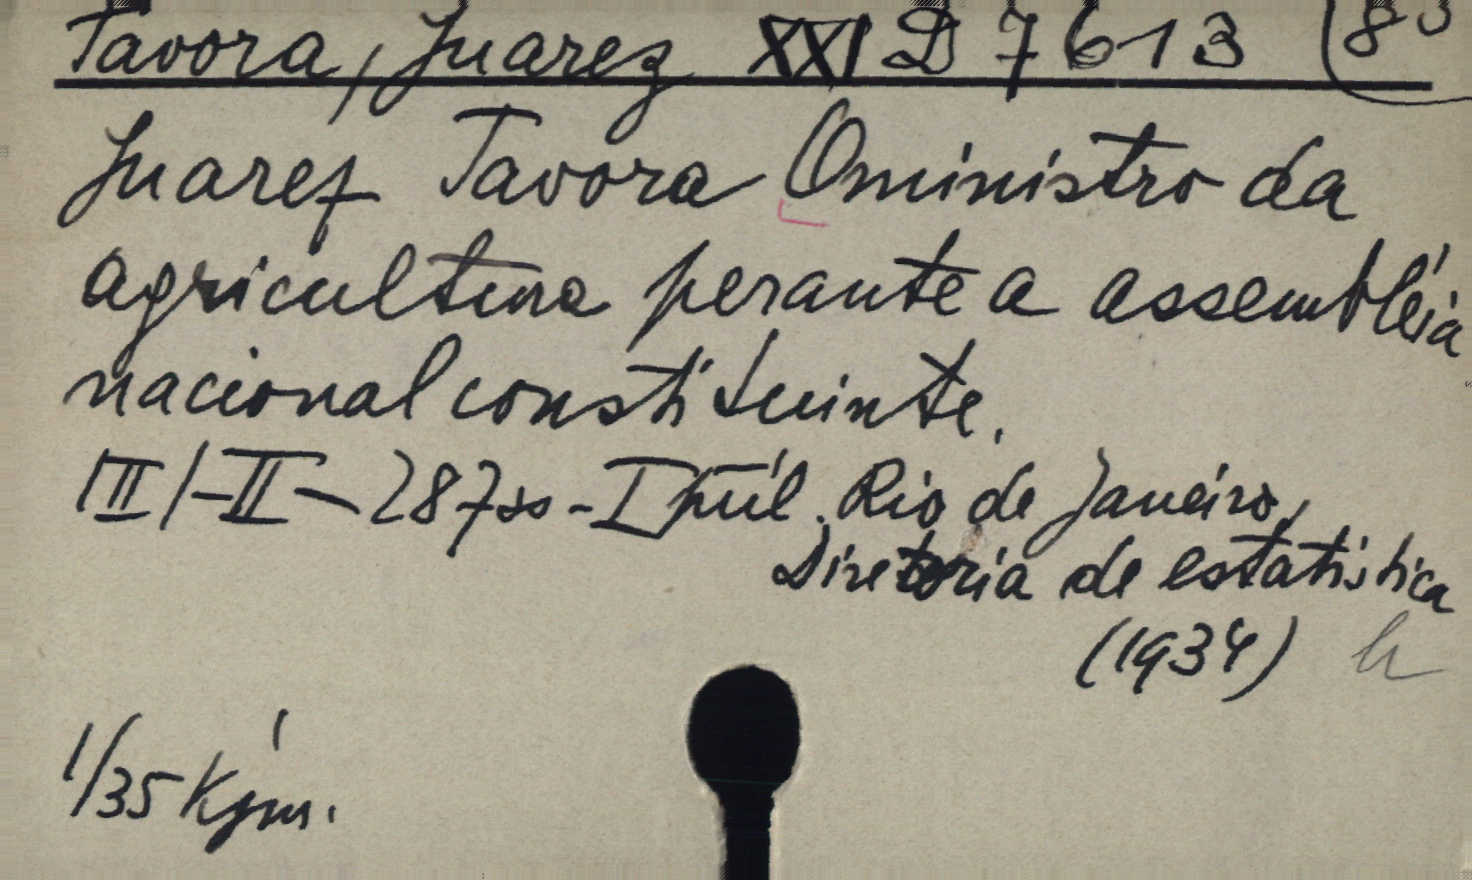 Tavora, Juarez XXI D 7613 (8°
Juarez Tavora O ministro da
agricultura perante a assembléia
nacional constituinte.
III/-II-287 ss - I Rio de Janeiro,
Diretoria de estatistica
(1934)
1/35 Kjm.